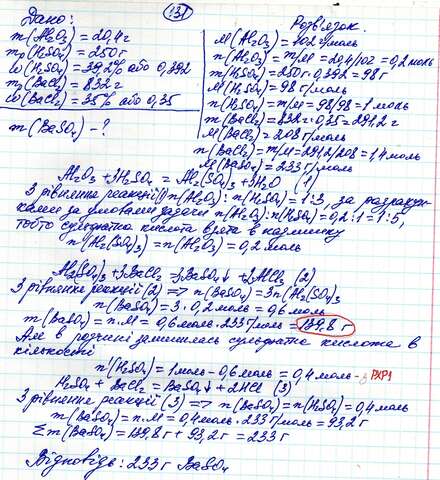 131
Дано:
m(Al₂O₃) = 20,4 г
mₚ(H₂SO₄) = 250 г
ω(H₂SO₄) = 39,2% або 0,392
mₚ(BaCl₂) = 832 г
ω(BaCl₂) = 35% або 0,35
m(BaSO₄) - ?
Розв'язок.
M(Al₂O₃) = 102 г/моль
n(Al₂O₃) = m/M = 20,4/102 = 0,2 моль
m(H₂SO₄) = 250 г · 0,392 = 98 г
M(H₂SO₄) = 98 г/моль
n(H₂SO₄) = m/M = 98/98 = 1 моль
m(BaCl₂) = 832 г · 0,35 = 291,2 г
M(BaCl₂) = 208 г/моль
n(BaCl₂) = m/M = 291,2/208 = 1,4 моль
M(BaSO₄) = 233 г/моль
Al₂O₃ + 3H₂SO₄ = Al₂(SO₄)₃ + 3H₂O (1)
З рівняння реакції(1) n(Al₂O₃) : n(H₂SO₄) = 1:3, за розрахун-
ками за умовами задачі n(Al₂O₃) : n(H₂SO₄) = 0,2 : 1 = 1:5,
тобто сульфатна кислота взята в надлишку
n(Al₂(SO₄)₃) = n(Al₂O₃) = 0,2 моль
Al₂(SO₄)₃ + 3BaCl₂ = 3BaSO₄↓ + 2AlCl₃ (2)
З рівняння реакції (2) => n(BaSO₄) = 3n(Al₂(SO₄)₃
n(BaSO₄) = 3 · 0,2 моль = 0,6 моль
m(BaSO₄) = n · M = 0,6 моль · 233 г/моль = 139,8 г
Але в розчині залишилась сульфатна кислота в
кількості
n'(H₂SO₄) = 1 моль - 0,6 моль = 0,4 моль
H₂SO₄ + BaCl₂ = BaSO₄↓ + 2HCl (3)
З рівняння реакції (3) => n(BaSO₄) = n(H₂SO₄) = 0,4 моль
m(BaSO₄) = n · M = 0,4 моль · 233 г/моль = 93,2 г
Σm(BaSO₄) = 139,8 г + 93,2 г = 233 г
Відповідь: 233 г BaSO₄